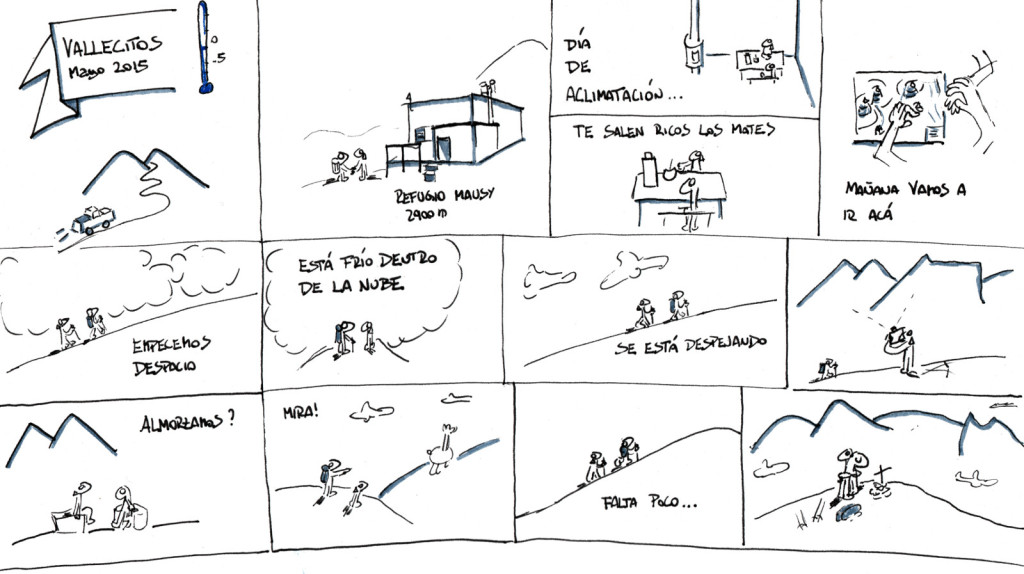 VALLECITOS
Mayo 2015
0
-5
REFUGIO MAUSY
2900 m
DÍA
DE
ACLIMATACIÓN...
TE SALEN RICOS LOS MATES
MAÑANA VAMOS A
IR ACÁ
EMPECEMOS
DESPACIO
ESTÁ FRÍO DENTRO
DE LA NUBE
SE ESTÁ DESPEJANDO
ALMORZAMOS?
MIRA!
FALTA POCO...